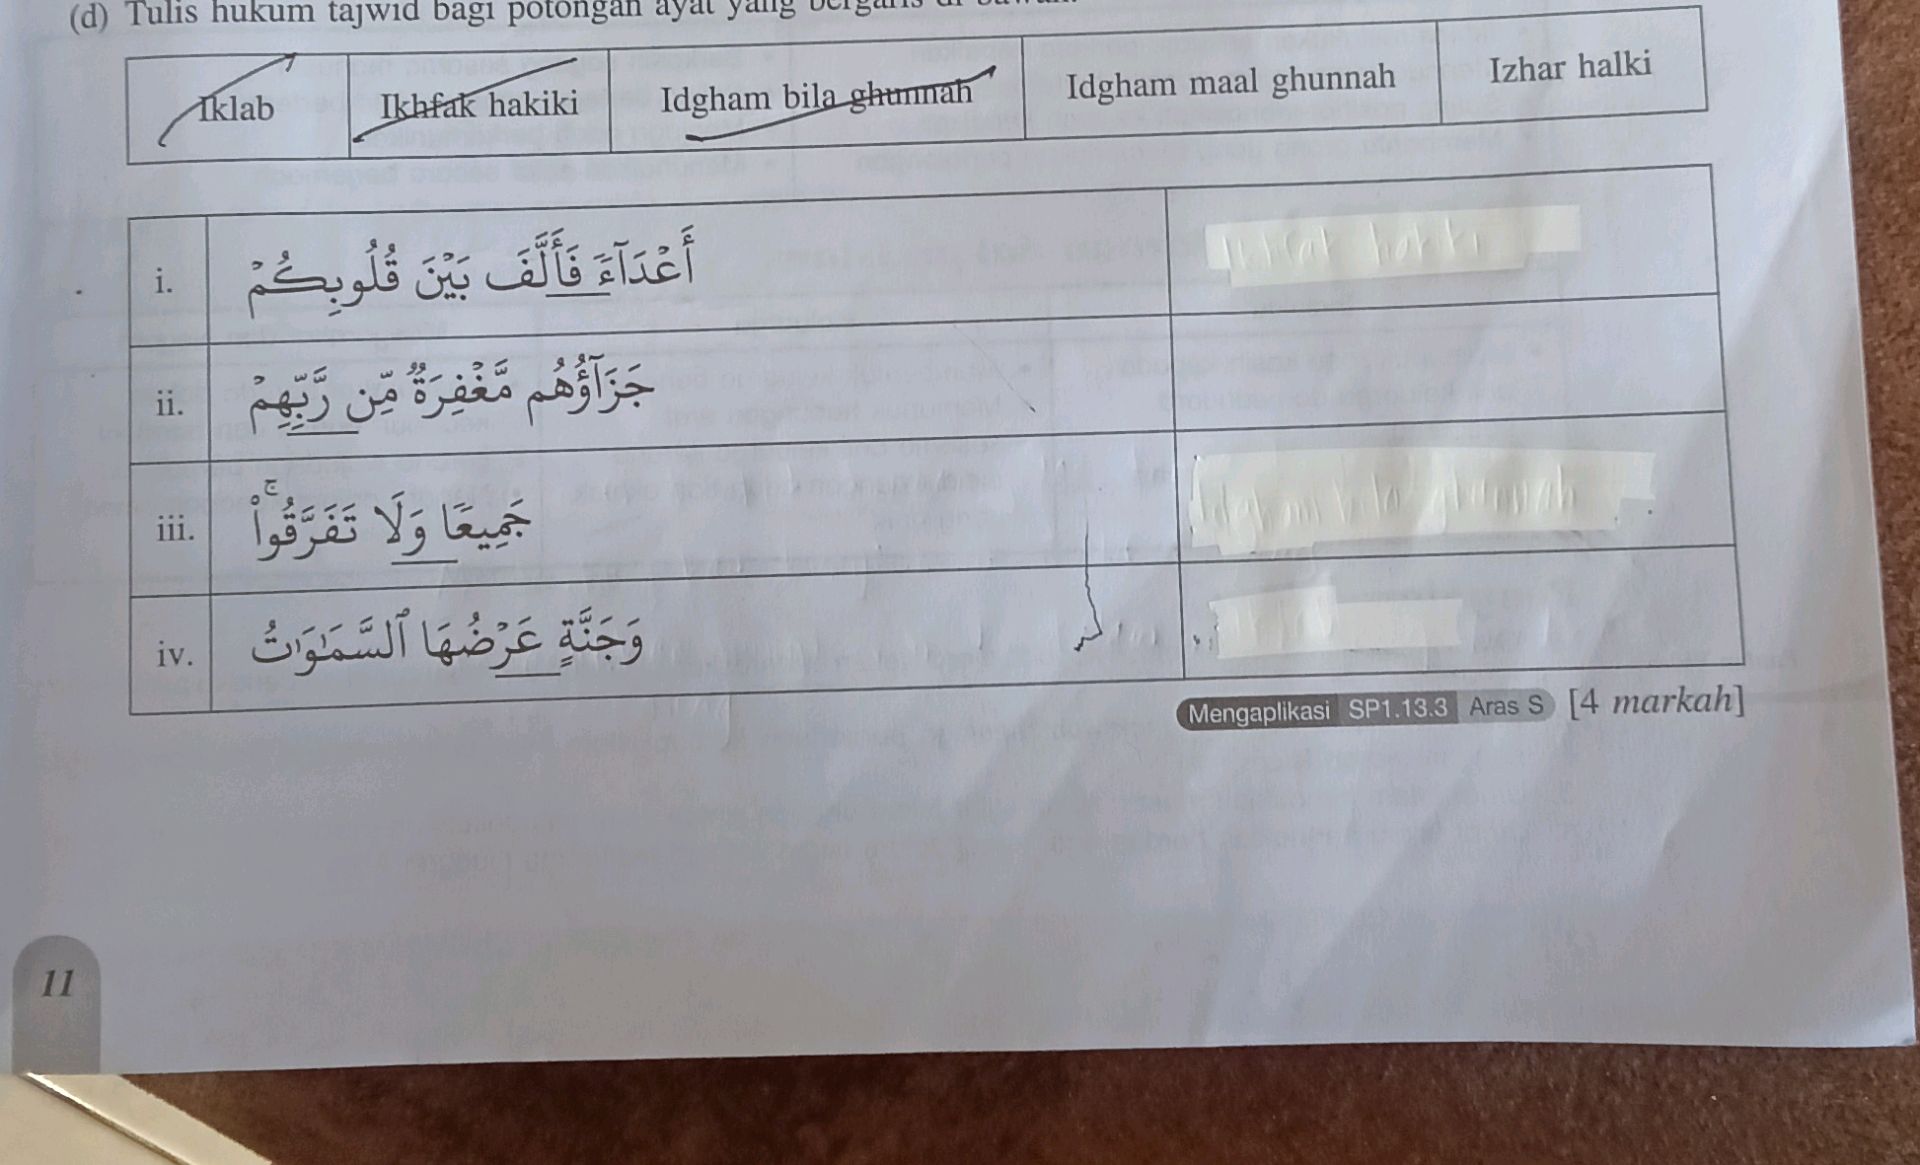 (d) Tulis hukum tajwid bagi potongan ayat yang bergaris di bawah.
Iklab Ikhfak hakiki Idgham bila ghunnah Idgham maal ghunnah Izhar halki
i. أَعْدَآءً فَأَلَّفَ بَيْنَ قُلُوبِكُمْ
ii. جَزَآؤُهُم مَّغْفِرَةٌ مِّن رَّبِّهِمْ
iii. جَمِيعًا وَلَا تَفَرَّقُوا۟ ۚ
iv. وَجَنَّةٍ عَرْضُهَا ٱلسَّمَـٰوَٰتُ
Mengaplikasi SP1.13.3 Aras S [4 markah]
11